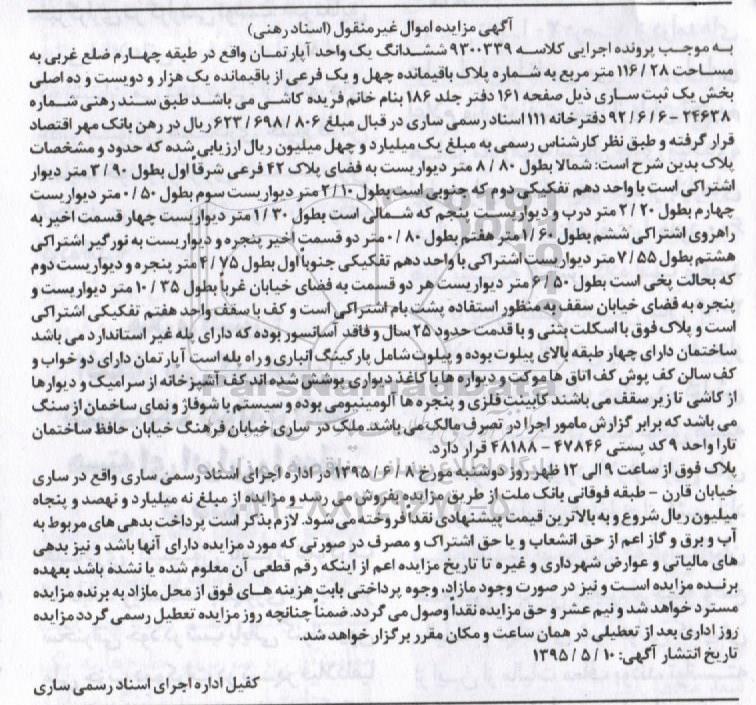 آگهی مزایده اموال غیرمنقول (اسناد رهنی)
به موجب پرونده اجرایی کلاسه ۹۳۰۰۳۳۹ ششدانگ یک واحد آپارتمان واقع در طبقه چهارم ضلع غربی به
مساحت ۱۱۶/۲۸ متر مربع به شماره پلاک باقیمانده چهل و یک فرعی از باقیمانده یک هزار و دویست و ده اصلی
بخش یک ثبت ساری ذیل صفحه ۱۶۱ دفتر جلد ۱۸۶ بنام خانم فریده کاشی می باشد طبق سند رهنی شماره
۲۴۶۳۸ - ۹۲/۶/۶ دفترخانه ۱۱۱ اسناد رسمی ساری در قبال مبلغ ۶۲۳/۶۹۸/۸۰۶ ریال در رهن بانک مهر اقتصاد
قرار گرفته و طبق نظر کارشناس رسمی به مبلغ یک میلیارد و چهل میلیون ریال ارزیابی شده که حدود و مشخصات
پلاک بدین شرح است: شمالا بطول ۸/۸۰ متر دیواریست به فضای پلاک ۴۲ فرعی شرقاً اول بطول ۳/۹۰ متر دیوار
اشتراکی است با واحد دهم تفکیکی دوم که جنوبی است بطول ۲/۱۰ متر دیواریست سوم بطول ۰/۵۰ متر دیواریست
چهارم بطول ۲/۲۰ متر درب و دیواریست پنجم که شمالی است بطول ۱/۳۰ متر دیواریست چهار قسمت اخیر به
راهروی اشتراکی ششم بطول ۱/۶۰ متر هفتم بطول ۰/۸۰ متر دو قسمت اخیر پنجره و دیواریست به نورگیر اشتراکی
هشتم بطول ۷/۵۵ متر دیواریست اشتراکی با واحد دهم تفکیکی جنوباً اول بطول ۴/۷۵ متر پنجره و دیواریست دوم
که بحالت پخی است بطول ۶/۵۰ متر دیواریست هر دو قسمت به فضای خیابان غرباً بطول ۱۰/۳۵ متر دیواریست و
پنجره به فضای خیابان سقف به منظور استفاده پشت بام اشتراکی است و کف با سقف واحد هفتم تفکیکی اشتراکی
است و پلاک فوق با اسکلت بتنی و با قدمت حدود ۲۵ سال و فاقد آسانسور بوده که دارای پله غیر استاندارد می باشد
ساختمان دارای چهار طبقه بالای پیلوت بوده و پیلوت شامل پارکینگ انباری و راه پله است آپارتمان دارای دو خواب و
کف سالن کف پوش کف اتاق ها موکت و دیواره ها با کاغذ دیواری پوشش شده اند کف آشپزخانه از سرامیک و دیوارها
از کاشی تا زیر سقف می باشند کابینت فلزی و پنجره ها آلومینیومی بوده و سیستم با شوفاژ و نمای ساختمان از سنگ
می باشد که برابر گزارش مامور اجرا در تصرف مالک می باشد. ملک در ساری خیابان فرهنگ خیابان حافظ ساختمان
تارا واحد ۹ کد پستی ۴۷۸۴۶ - ۴۸۱۸۸ قرار دارد.
پلاک فوق از ساعت ۹ الی ۱۲ ظهر روز دوشنبه مورخ ۱۳۹۵/۶/۸ در اداره اجرای اسناد رسمی ساری واقع در ساری
خیابان قارن - طبقه فوقانی بانک ملت از طریق مزایده بفروش می رسد و مزایده از مبلغ نه میلیارد و نهصد و پنجاه
میلیون ریال شروع و به بالاترین قیمت پیشنهادی نقدا فروخته می شود. لازم بذکر است پرداخت بدهی های مربوط به
آب و برق و گاز اعم از حق انشعاب و یا حق اشتراک و مصرف در صورتی که مورد مزایده دارای آنها باشد و نیز بدهی
های مالیاتی و عوارض شهرداری و غیره تا تاریخ مزایده اعم از اینکه رقم قطعی آن معلوم شده یا نشده باشد بعهده
برنده مزایده است و نیز در صورت وجود مازاد، وجوه پرداختی بابت هزینه های فوق از محل مازاد به برنده مزایده
مسترد خواهد شد و نیم عشر و حق مزایده نقدا وصول می گردد. ضمناً چنانچه روز مزایده تعطیل رسمی گردد مزایده
روز اداری بعد از تعطیلی در همان ساعت و مکان مقرر برگزار خواهد شد.
تاریخ انتشار آگهی: ۱۳۹۵/۵/۱۰
کفیل اداره اجرای اسناد رسمی ساری
ParsNamadData